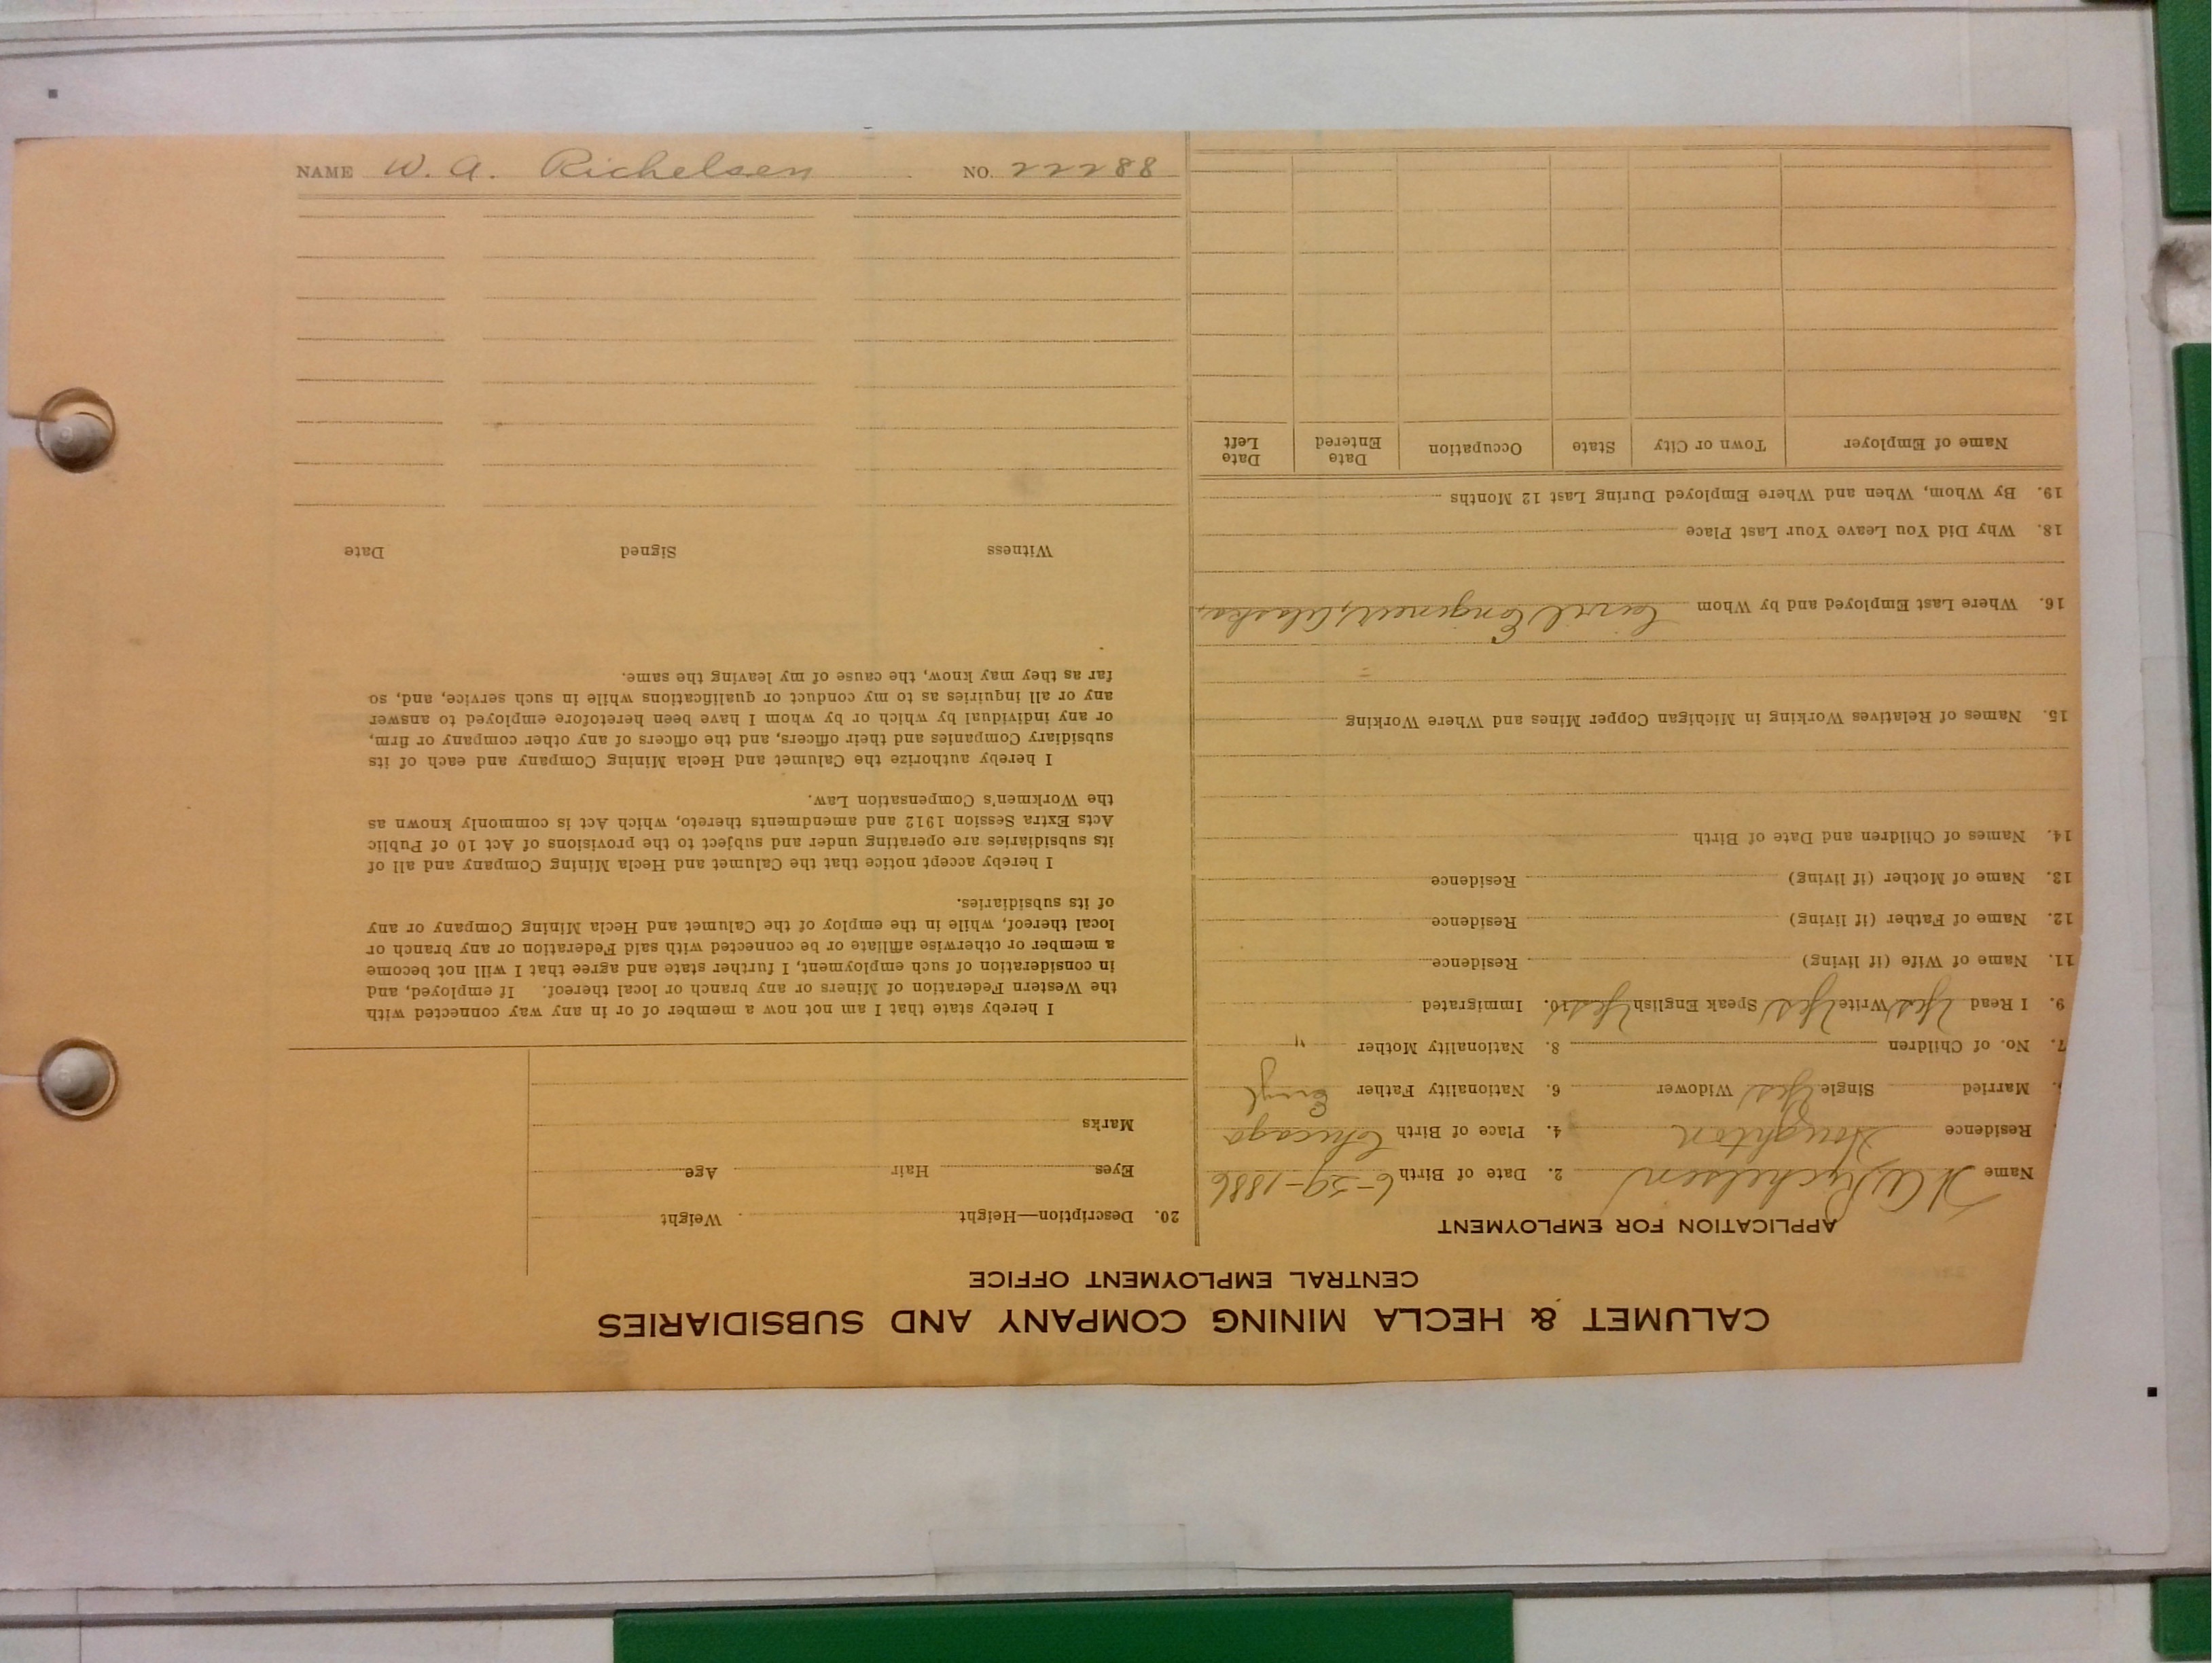 NAME W. A. Richelsen NO. 22288
CALUMET & HECLA MINING COMPANY AND SUBSIDIARIES
CENTRAL EMPLOYMENT OFFICE
APPLICATION FOR EMPLOYMENT
Name W A Richelsen 2. Date of Birth 6-29-1886
Residence Houghton 4. Place of Birth Chicago
Married Single Yes Widower 6. Nationality Father Engl
7. No. of Children 8. Nationality Mother "
9. I Read Yes Write Yes Speak English Yes 10. Immigrated
11. Name of Wife (if living) Residence
12. Name of Father (if living) Residence
13. Name of Mother (if living) Residence
14. Names of Children and Date of Birth
15. Names of Relatives Working in Michigan Copper Mines and Where Working
16. Where Last Employed and by Whom Civil Engineer, Alaska,
18. Why Did You Leave Your Last Place
19. By Whom, When and Where Employed During Last 12 Months
Name of Employer Town or City State Occupation Date Entered Date Left
20. Description—Height Weight
Eyes Hair Age
Marks
I hereby state that I am not now a member of or in any way connected with
the Western Federation of Miners or any branch or local thereof. If employed, and
in consideration of such employment, I further state and agree that I will not become
a member or otherwise affiliate or be connected with said Federation or any branch or
local thereof, while in the employ of the Calumet and Hecla Mining Company or any
of its subsidiaries.
I hereby accept notice that the Calumet and Hecla Mining Company and all of
its subsidiaries are operating under and subject to the provisions of Act 10 of Public
Acts Extra Session 1912 and amendments thereto, which Act is commonly known as
the Workmen's Compensation Law.
I hereby authorize the Calumet and Hecla Mining Company and each of its
subsidiary Companies and their officers, and the officers of any other company or firm,
or any individual by which or by whom I have been heretofore employed to answer
any or all inquiries as to my conduct or qualifications while in such service, and, so
far as they may know, the cause of my leaving the same.
Witness Signed Date